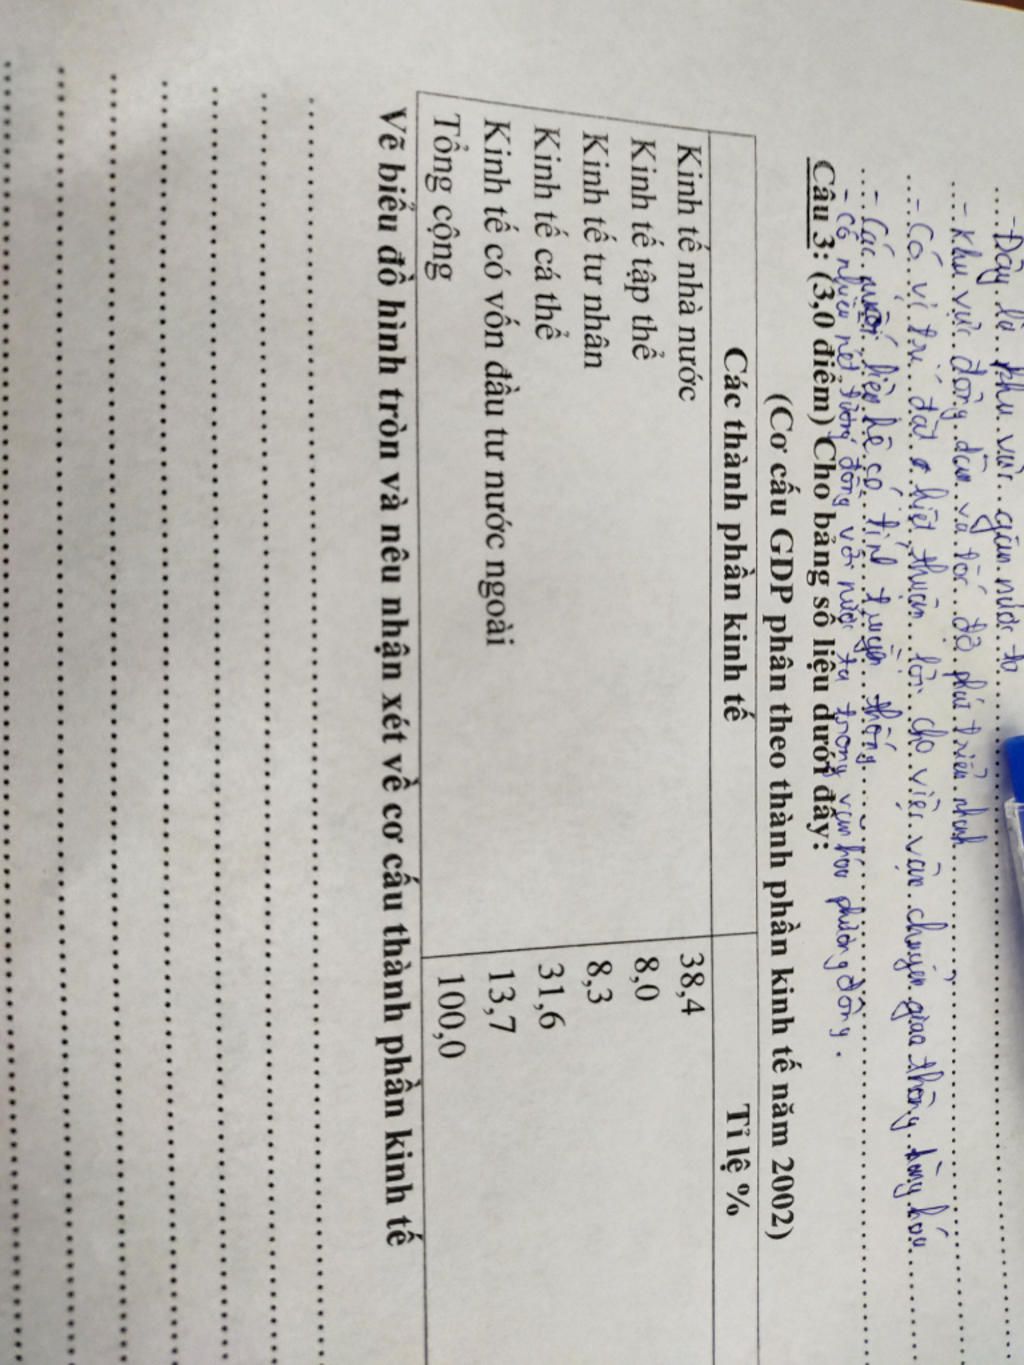 - Đây là khu vực gần nước ta
- Khu vực đông dân và tốc độ phát triển nhanh
- Có vị trí đặt biệt, thuận lợi cho việc vận chuyển giao thông hàng hóa
- Các mối liên hệ có tính truyền thống
- Có nhiều nét tương đồng với nước ta trong văn hóa phương đông.
Câu 3: (3,0 điểm) Cho bảng số liệu dưới đây:
(Cơ cấu GDP phân theo thành phần kinh tế năm 2002)
Các thành phần kinh tế Tỉ lệ %
Kinh tế nhà nước 38,4
Kinh tế tập thể 8,0
Kinh tế tư nhân 8,3
Kinh tế cá thể 31,6
Kinh tế có vốn đầu tư nước ngoài 13,7
Tổng cộng 100,0
Vẽ biểu đồ hình tròn và nêu nhận xét về cơ cấu thành phần kinh tế